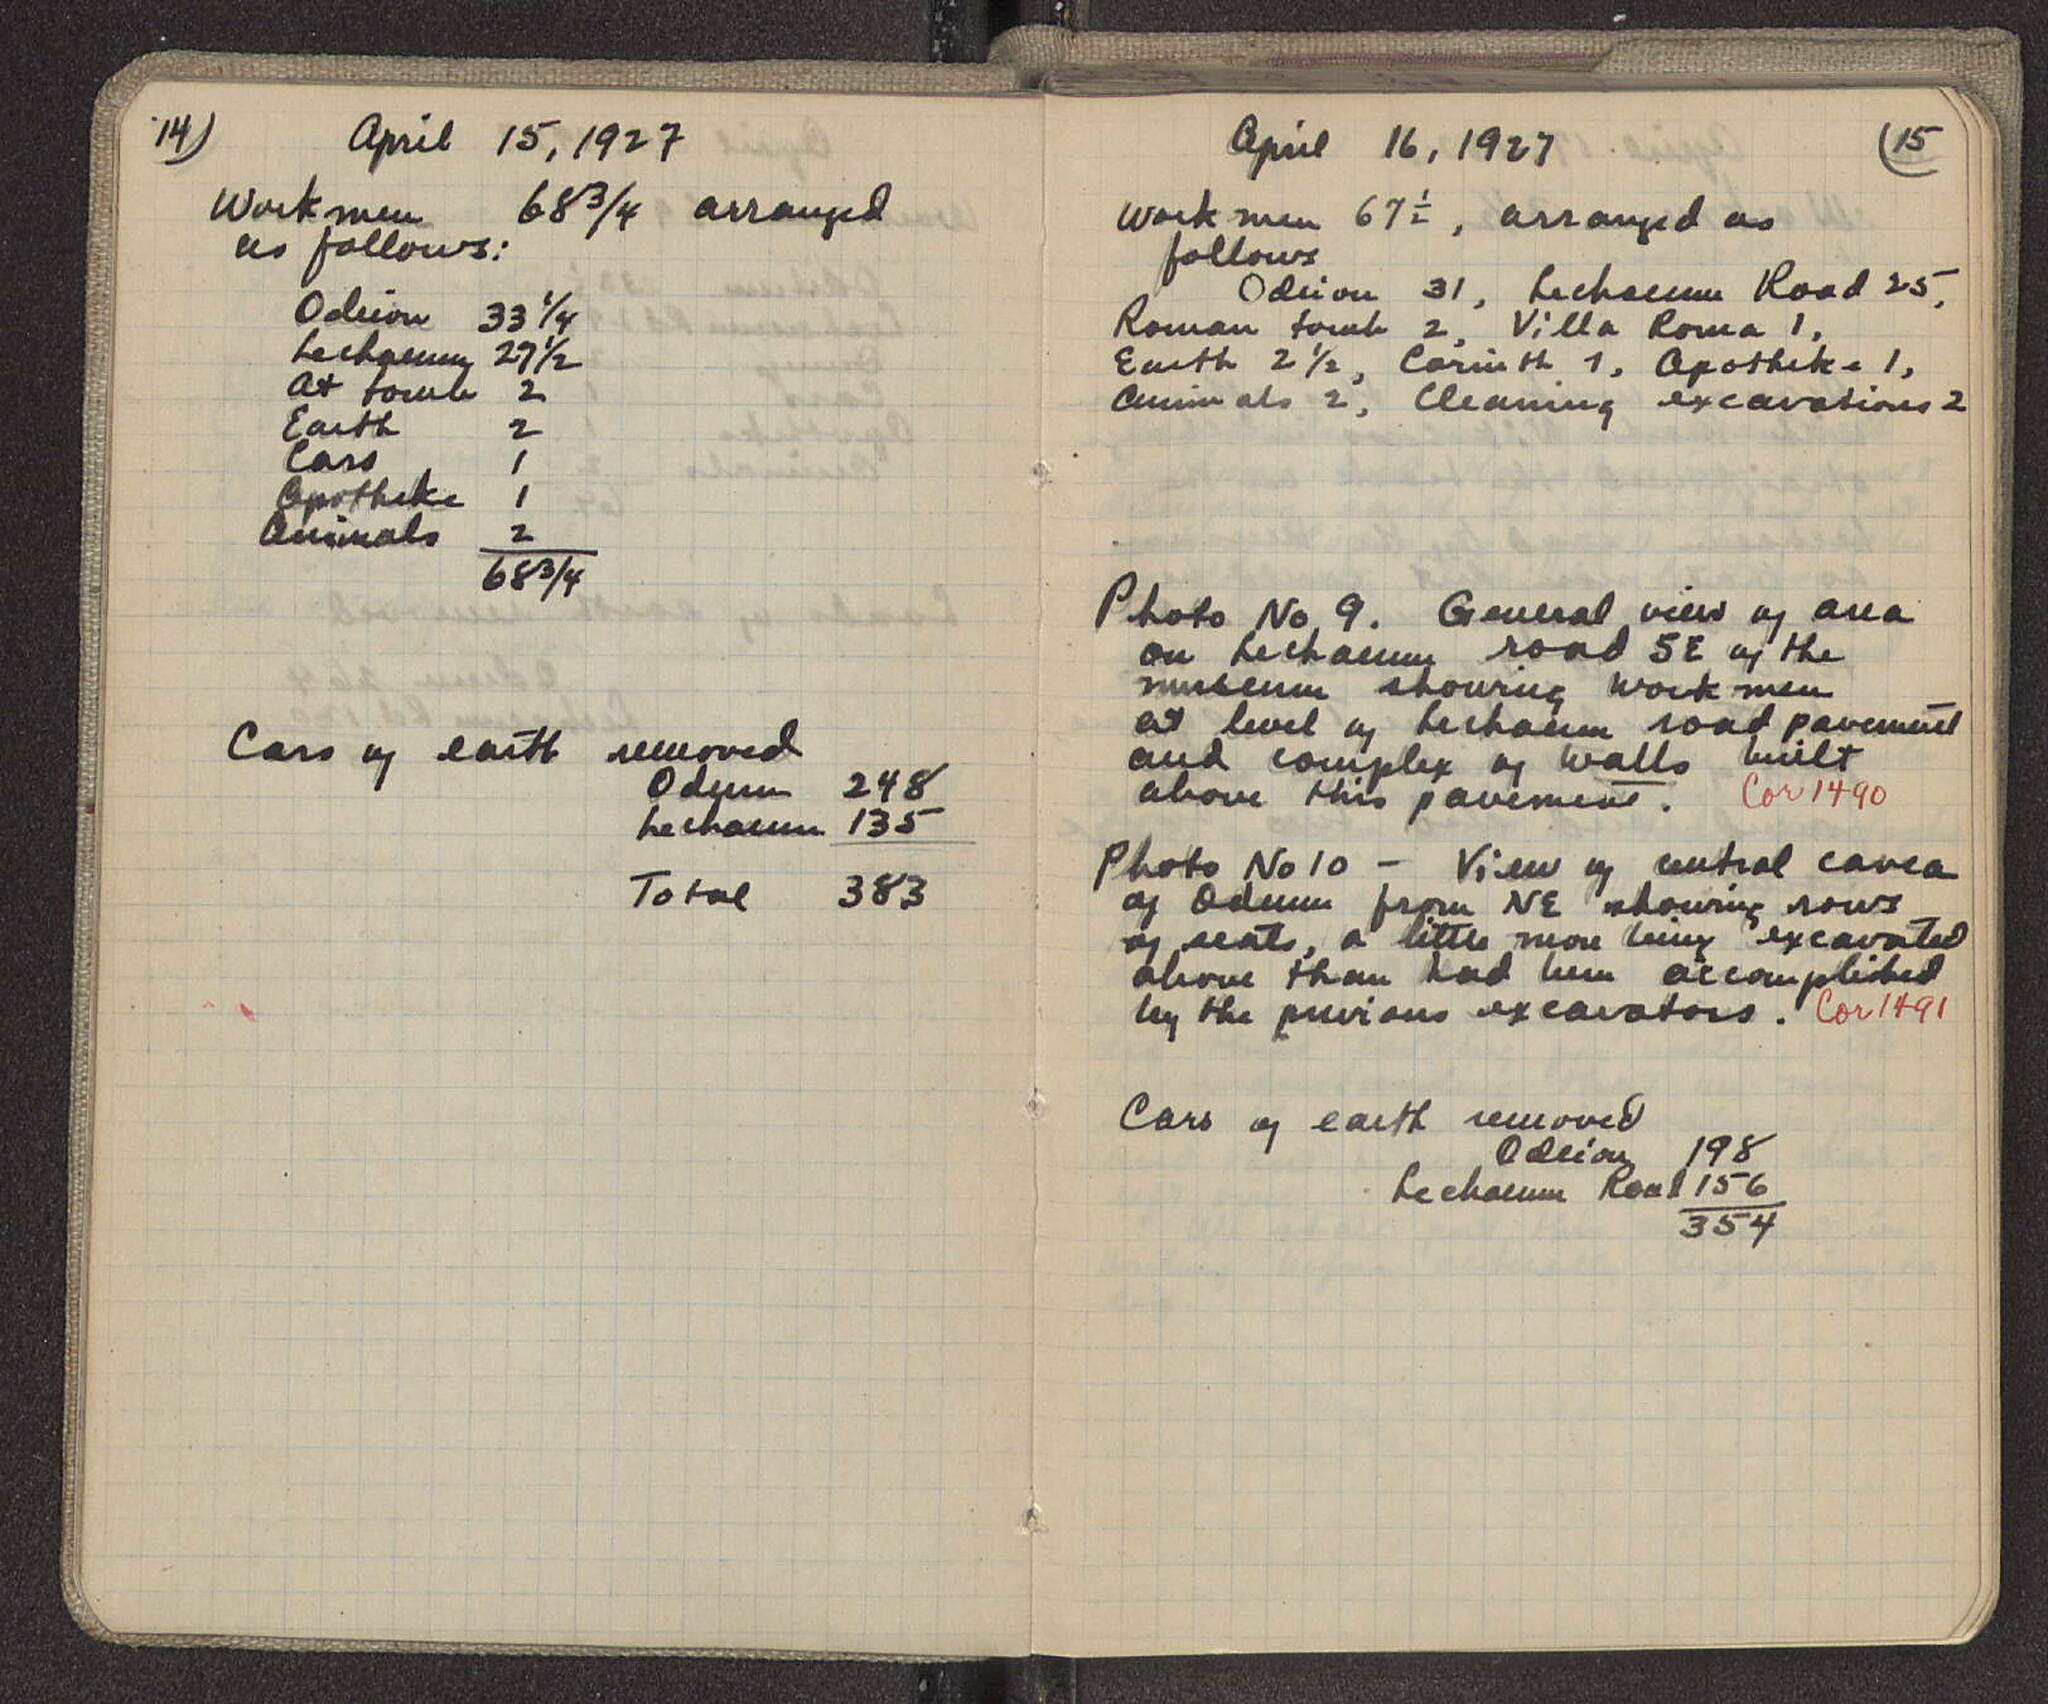 14)
April 15, 1927
Workmen 68 3/4 arranged
as follows:
Odeion 33 1/4
Lechaeum 27 1/2
At tomb 2
Earth 2
Cars 1
Apotheke 1
Animals 2
68 3/4
Cars of earth removed
Odeum 248
Lechaeum 135
Total 383
April 16, 1927
(15
Workmen 67 1/2, arranged as
follows
Odeion 31, Lechaeum Road 25,
Roman tomb 2, Villa Roma 1,
Earth 2 1/2, Corinth 1, Apotheke 1,
Animals 2, Cleaning excavations 2
Photo No. 9. General view of area
on Lechaeum road SE of the
museum showing workmen
at level of Lechaeum road pavement
and complex of walls built
above this pavement. Cor 1490
Photo No 10 - View of central cavea
of Odeum from NE showing rows
of seats, a little more being excavated
above than had been accomplished
by the previous excavators. Cor 1491
Cars of earth removed
Odeion 198
Lechaeum Road 156
354